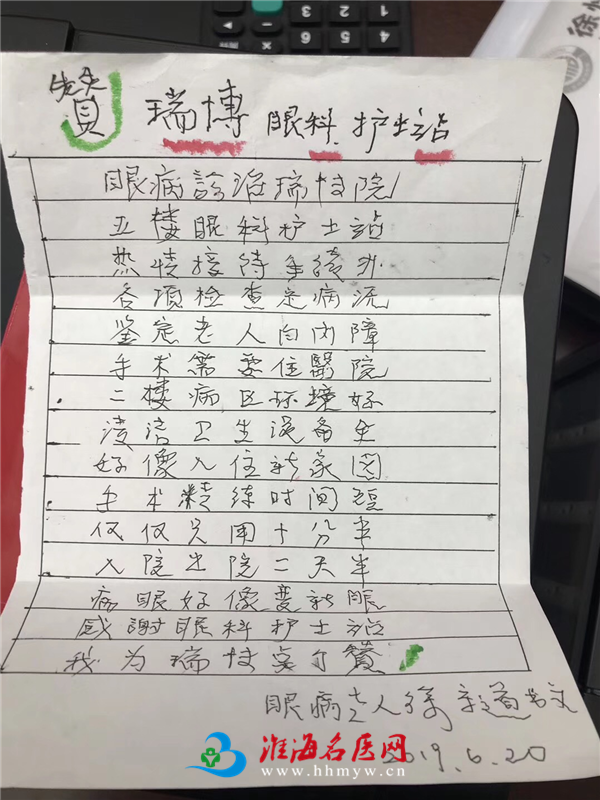 徐州
赞 瑞博眼科护士站
眼病診治瑞博院
五楼眼科护士站
热情接待手续办
各项检查定病况
鉴定老人白内障
手术需要住醫院
二楼病区环境好
清洁卫生设备全
好像入住新家园
手术精练时间短
仅仅只用十分半
入院出院二天半
病眼好像变新眼
感謝眼科护士站
我为瑞博点个赞
眼病老人徐
2019.6.20
淮海名医网
www.hhmyw.cn